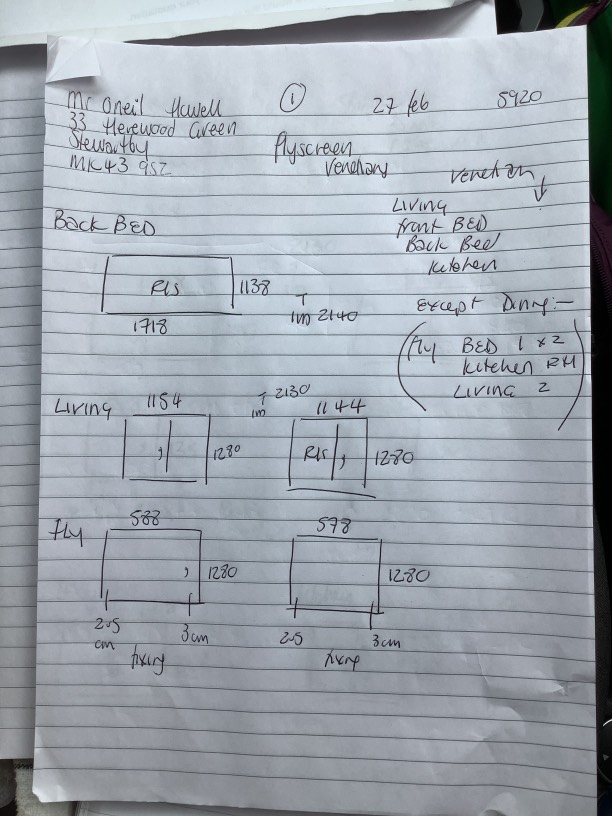 Mr Oneil Howell ① 27 feb 5920
33 Herewood Green
Stewartby
MK43 9SZ
Flyscreen
Venetians
Venetian ↓
Living
front BED
Back Bed
kitchen
Except Dining:-
Fly BED 1 x 2
kitchen RH
Living 2
Back BED
RLS 1138
1718
T
2140
Living
1154
1280
T 2130
1144
RLS 1280
Fly
588
1280
2.5 cm 3cm
fixing
578
1280
2.5 3cm
fixing